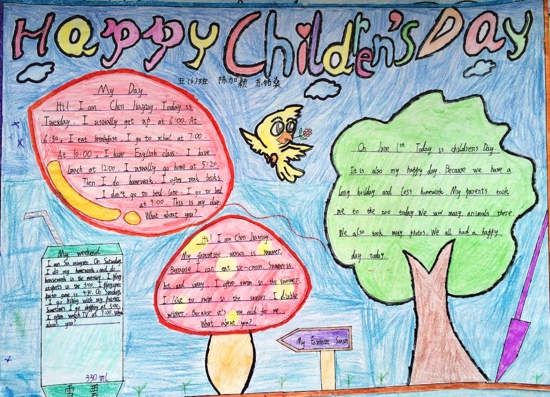 Happy Children's Day
五(6)班
My Day
Hi! I am Chen Jiaying. Today is
Tuesday. I usually get up at 6:00. At
6:30, I eat breakfast. I go to school at 7:00.
At 10:00, I have English class. I have
lunch at 12:00. I usually go home at 5:20.
Then I do homework. I often wash books.
I don't go to bed late. I go to bed
at 9:00. This is my day.
What about you?
On June 1st Today is children's Day.
It is also my happy day. Because we have a
long holiday and less homework. My parents took
me to the zoo today. We saw many animals there.
We also took many photos. We all had a happy
day today.
Hi! I am Chen Jiaying.
My favourite season is summer.
Because I can eat ice-cream. Summer is
hot and sunny. I often swim in the summer.
I like to swim in the summer. I dislike
winter. Because it's too cold for me.
What about you?
My weekend
I do my homework and do
housework in the morning. I play
I go hiking with my parents.
Sometimes I go shopping at
I often watch TV at 7:00. What
about you?
330 mL
雪碧
My Favourite Season